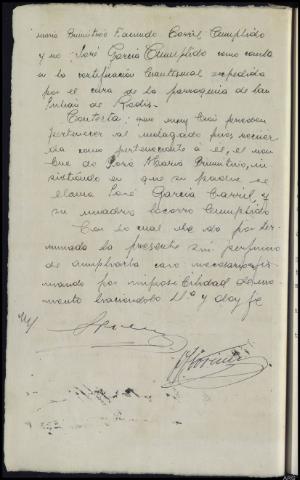 mario Primitivo Facundo Carril Cumplido
y no José Garcia Cumplido como consta
en la certificación Cuantesual expedida
por el cura de la parroquia de San
Julian de Rodis.
Contesta: que muy bien pueden
pertenecer al malogrado pues recuer
da como perteneciente a él, el nom
bre de José Mario Primitivo, in
sistiendo en que su padre se
llama José Garcia Carril y
su madre Socorro Cumplido
Con lo cual se dá por ter
minada la presente sin perjuicio
de ampliarla caso necesario fir
mando por imposibilidad del
mento haciendolo S.Sª y doy fe